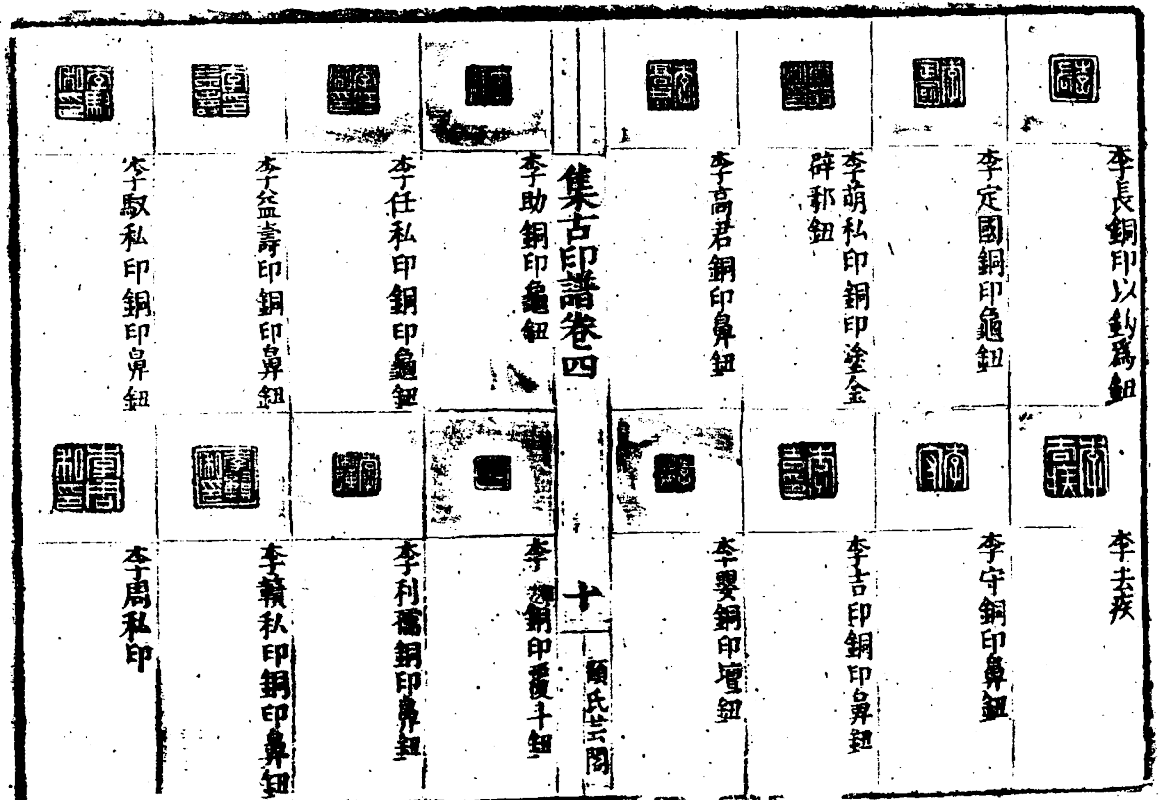 李長銅印以鈎爲鈕
李定國銅印龜鈕
李萌私印銅印塗金
辟邪鈕
李高君銅印鼻鈕
李去疾
李守銅印鼻鈕
李吉印銅印鼻鈕
李嬰銅印壇鈕
集古印譜卷四
十
顧氏芸閣
李助銅印龜鈕
李任私印銅印龜鈕
李益壽印銅印鼻鈕
李馭私印銅印鼻鈕
李 銅印覆斗鈕
李利孺銅印鼻鈕
李贛私印銅印鼻鈕
李周私印